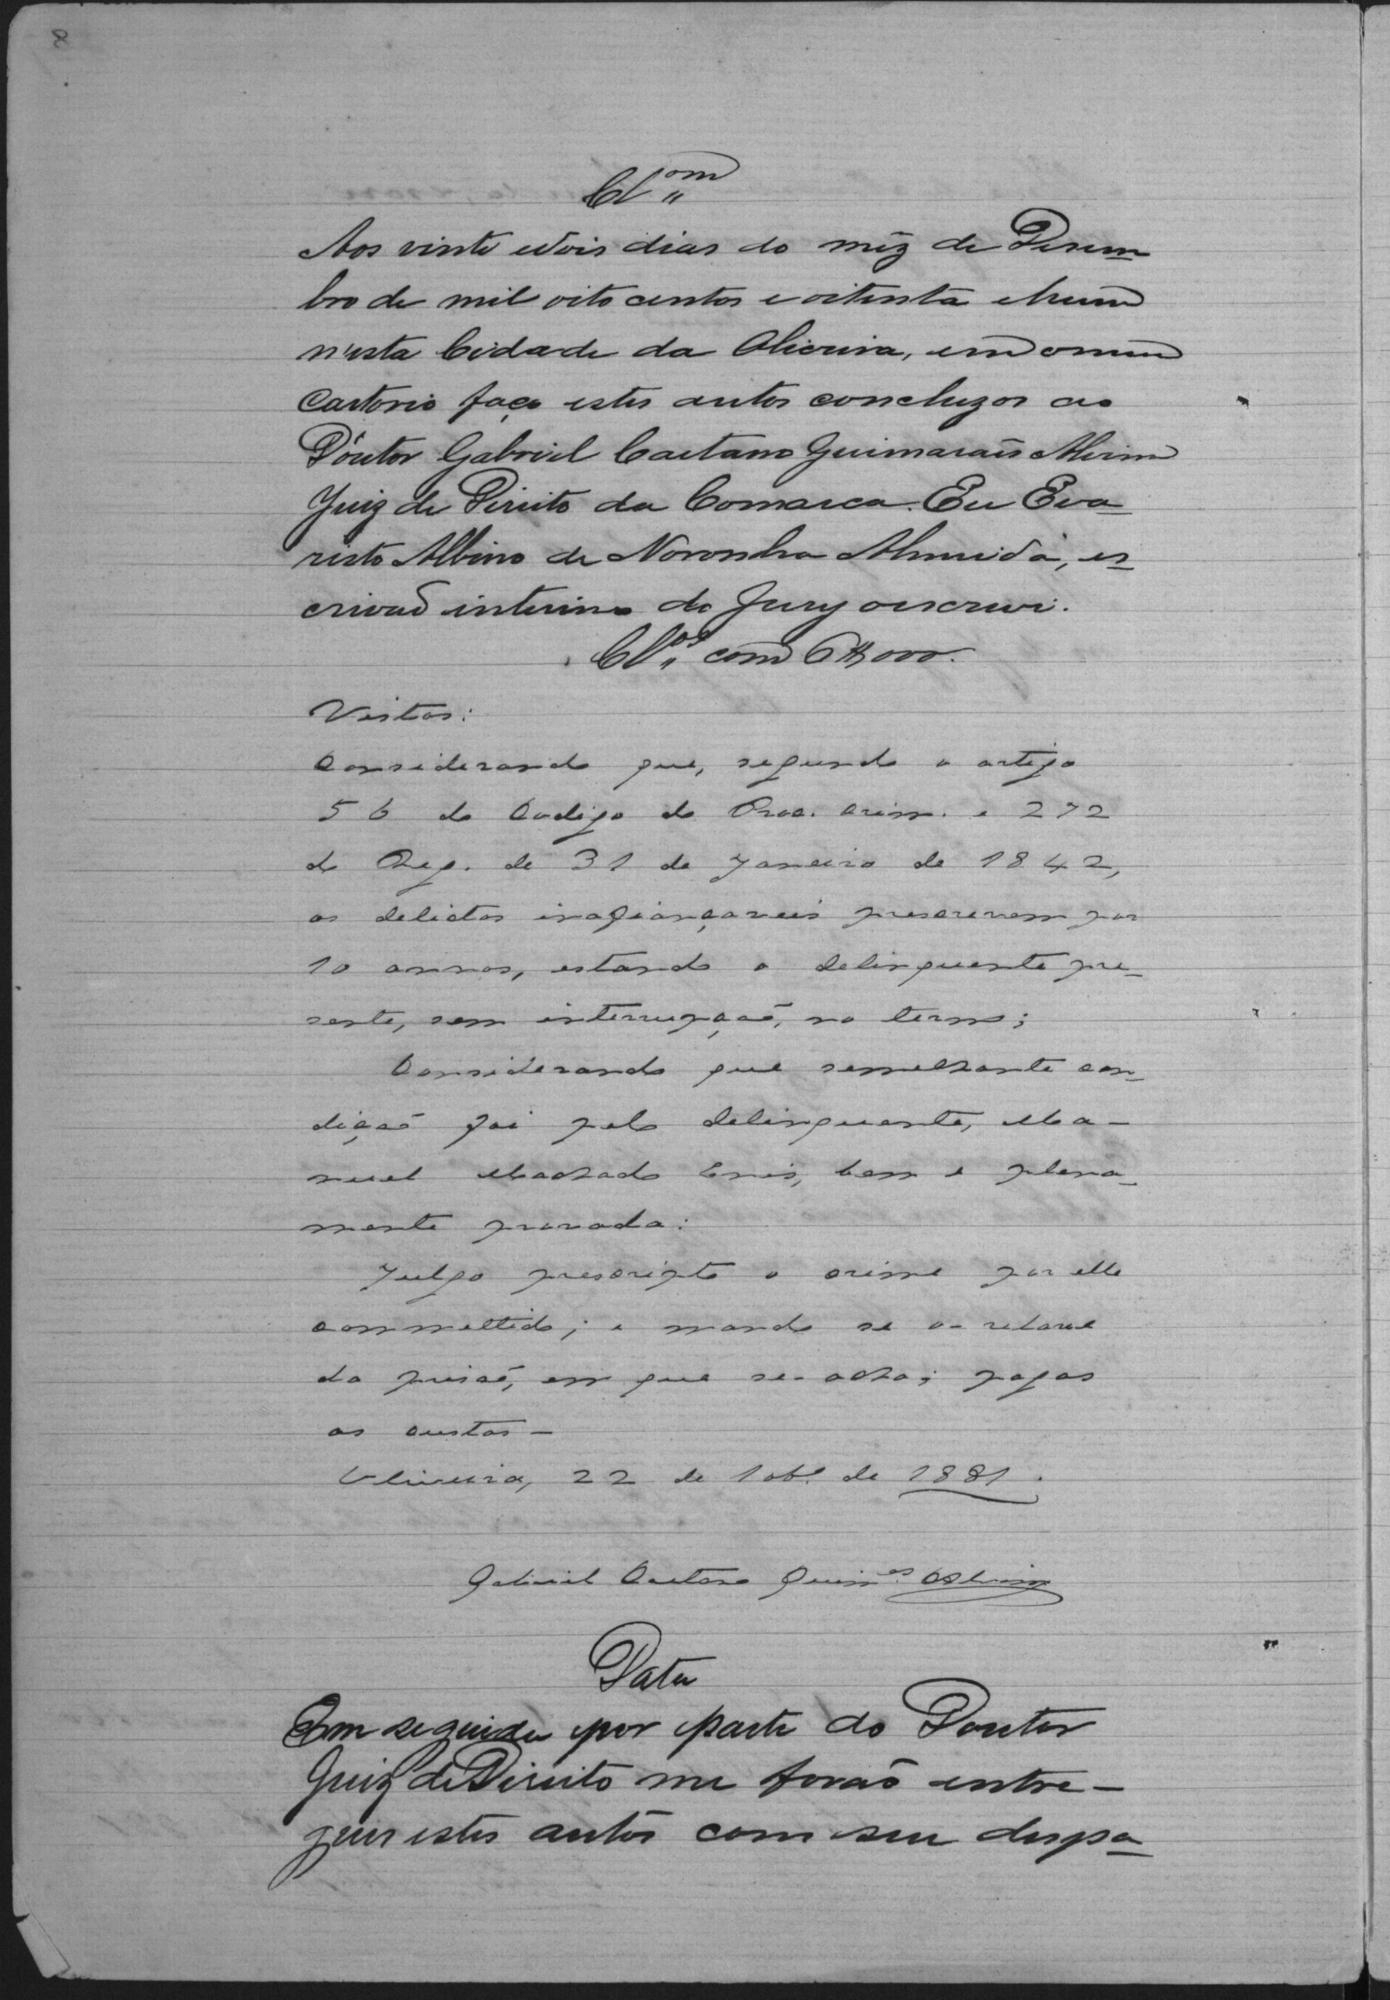 Cl.om
Aos vinte edois dias do mêz de Dezem-
bro de mil oito centos e oitenta ehum
n'esta Cidade da Oliveira, em o meu
Cartorio faço estes autos concluzos ao
Doutor Gabriel Caetano Guimarães Alvim
Juiz de Direito da Comarca. Eu Eva-
risto Albino de Noronha Almeida, es-
crivaõ interino do Jury o escrevi.
Cl.os com 6$000.
Vistos:
Considerando que, segundo o artigo
56 do Codigo do Proc. Crim. e 272
do Reg. de 31 de Janeiro de 1842,
os delictos inafiançaveis prescrevem por
10 annos, estando o delinquente pre-
sente, sem interrupçaõ, no termo;
Considerando que semelhante con-
diçaõ foi pelo delinquente, Ma-
noel Machado, bem e plena-
mente provada:
Julgo prescripto o crime por elle
commettido; e mando se o relaxe
da prisaõ, em que se acha; pagas
as custas -
Oliveira, 22 de 10br.º de 1881.
Gabriel Caetano Guim.es Alvim
Data
Em seguida por parte do Doutor
Juiz de Direito me foraõ entre-
gues estes autos com seu despa-